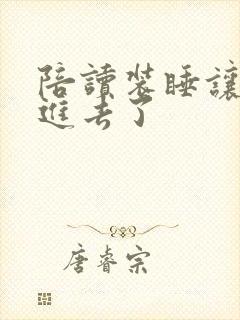 陪讀裝睡讓
進去了
唐睿宗